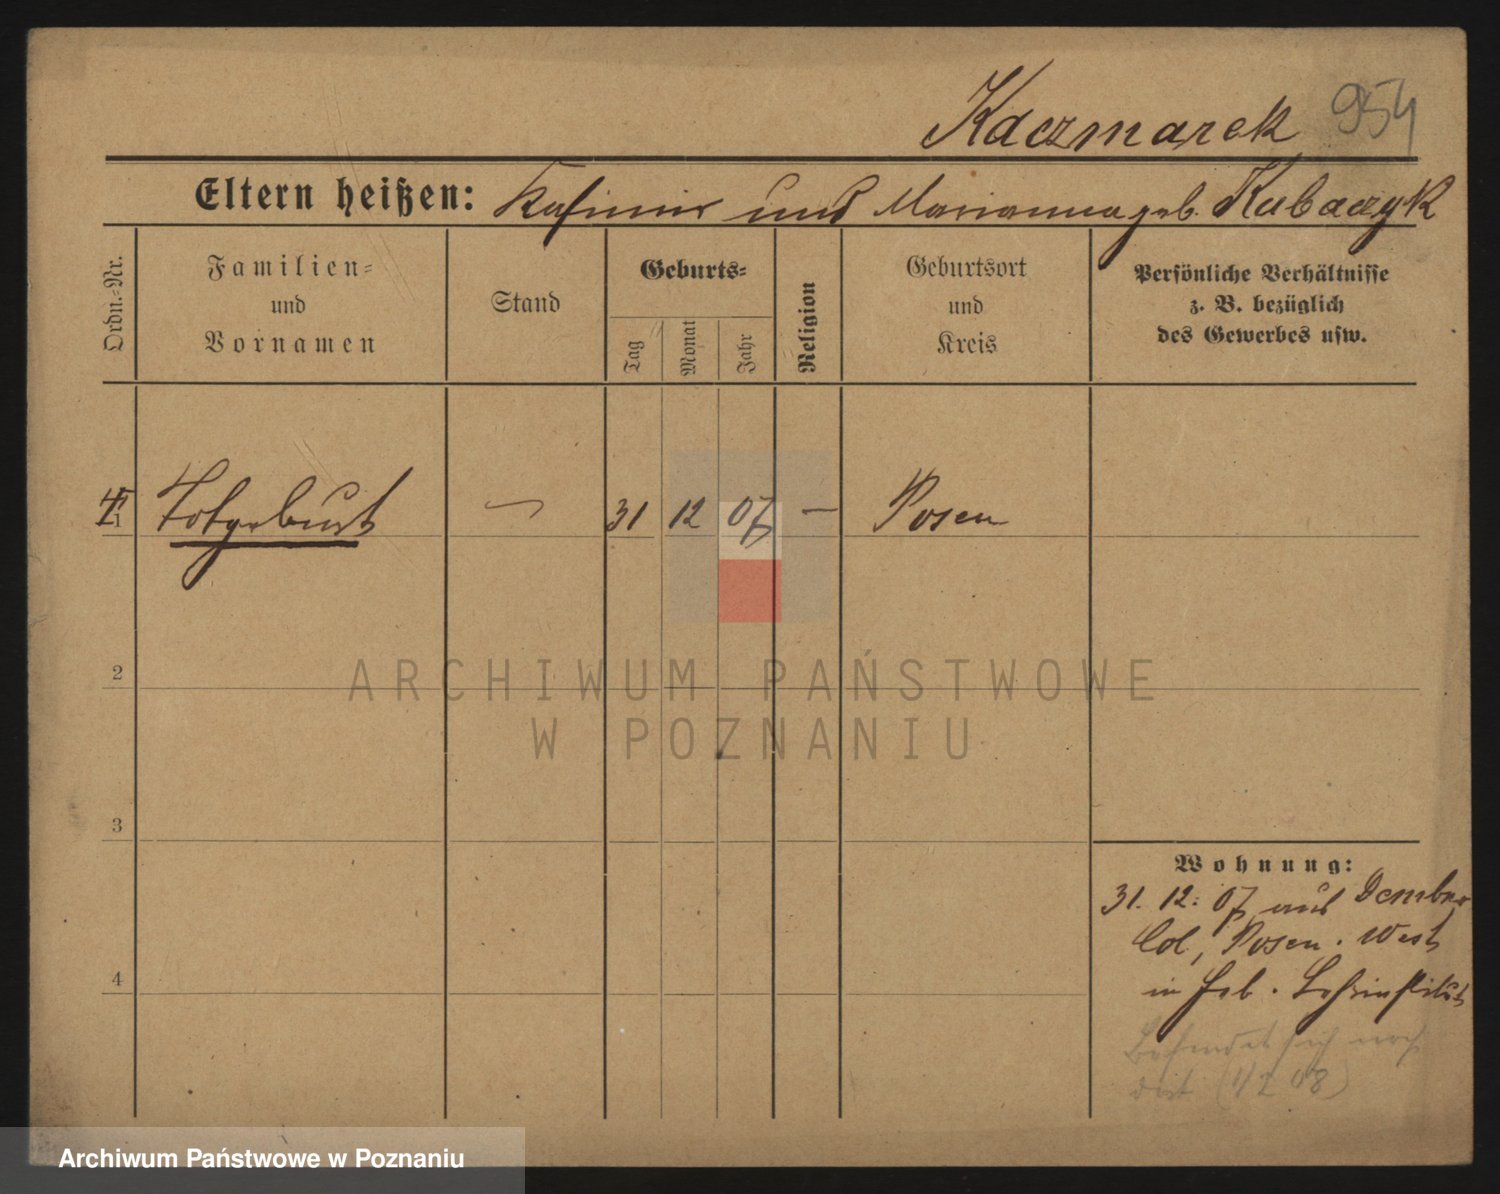 Kaczmarek 954
Eltern heißen: Kasimir und Marianna geb. Kubaczyk
Ordn.-Nr.
Familien-
und
Vornamen
Stand
Geburts-
Tag
Monat
Jahr
Religion
Geburtsort
und
Kreis
Persönliche Verhältnisse
z. B. bezüglich
des Gewerbes usw.
1 Totgeburt — 31 12 07 — Posen
2
ARCHIWUM PAŃSTWOWE
W POZNANIU
3
Wohnung:
31. 12. 07 aus
Col, Posen. West
in Heb. Lehrinstitut
4
Befindet sich noch
dort (1/2 08)
Archiwum Państwowe w Poznaniu